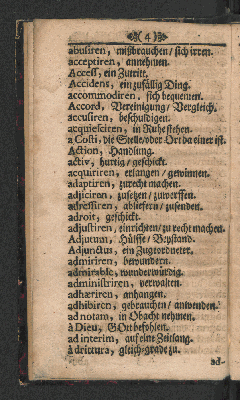 (4)
abusiren, mißbrauchen/ sich irren.
acceptiren, annehmen.
Access, ein Zutritt.
Accidens, ein zufällig Ding.
accommodiren, sich bequemen.
Accord, Vereinigung/ Vergleich.
accusiren, beschuldigen.
acquiesciren, in Ruhe stehen.
a Costi, die Stelle/oder Ort da einer ist.
Action, Handlung.
activ, hurtig/ geschickt.
acquiriren, erlangen/ gewinnen.
adaptiren, zurecht machen.
adjiciren, zusetzen/ zuwerffen.
adressiren, abliefern/ zusenden.
adroit, geschickt.
adjustiren, einrichten/ zu recht machen.
Adjutum, Hülffe/ Beystand.
Adjunctus, ein Zugeordneter.
admiriren, bewundern.
admirable, wunderwürdig.
administriren, verwalten.
adhæriren, anhangen.
adhibiren, gebrauchen/ anwenden.
ad notam, in Obacht nehmen.
à Dieu, GOtt befohlen.
ad interim, auf eine Zeitlang.
à drittura, gleich-grade zu.
ad-